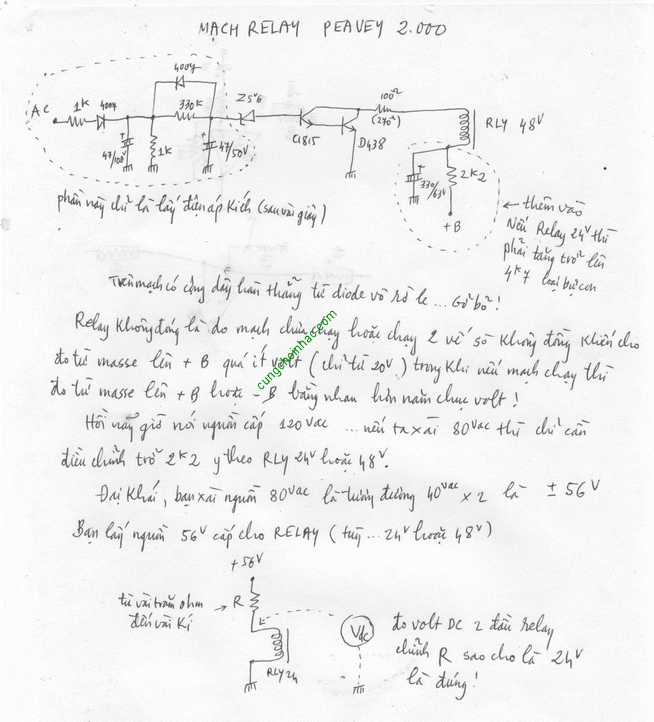 MẠCH RELAY PEAVEY 2.000
AC
1K
4007
47/100V
1K
4007
330K
47/50V
Z5V6
C1815
D438
100Ω
(270Ω)
RLY 48V
330/63V
2K2
+B
phần này chỉ là lấy điện áp kích (sau vài giây)
← thêm vào
Nếu Relay 24V thì
phải tăng trở lên
4K7 loại bự con
Trên mạch có cọng dây hàn thẳng từ diode vô rờ le ... Gỡ bỏ!
Relay không đóng là do mạch chưa chạy hoặc chạy 2 vế số không đồng khiến cho
đo từ masse lên +B quá ít volt (chỉ từ 20V) trong khi nếu mạch chạy thì
đo từ masse lên +B hoặc -B bằng nhau hơn năm chục volt!
cungchoinhac.com
Hồi nãy giờ nói nguồn cấp 120VAC ... nếu ta xài 80VAC thì chỉ cần
điều chỉnh trở 2K2 y theo RLY 24V hoặc 48V.
Đại khái, bạn xài nguồn 80VAC là tương đương 40VAC x 2 là ± 56V
Bạn lấy nguồn 56V cấp cho RELAY (tùy ... 24V hoặc 48V)
+56V
từ vài trăm ohm
đến vài Kí
→ R
RLY24
Vdc
đo volt DC 2 đầu relay
chỉnh R sao cho là 24V
là đúng!